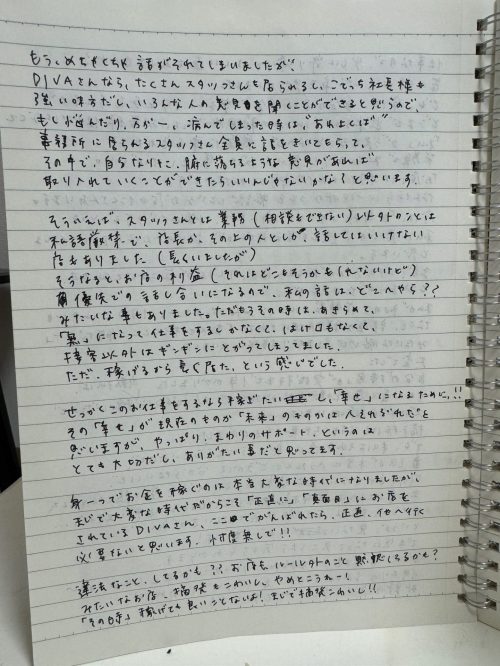 もう、めちゃくちゃ話がそれてしまいましたが!
DIVAさんなら、たくさんスタッフさんも居られるし、こでっち社長様も
強い味方だし、いろんな人の意見を聞くことができると思うので、
もし悩んだり、万が一、病んでしまった時は、"あれよくば"
事務所に居られるスタッフさん全員に話をきいてもらって、
その中で、自分なりに、腑に落ちるような意見があれば
取り入れていくことができたらいいんじゃないかな?と思います。
そういえば、スタッフさんとは業務(相談もできない)以外のことは
私語厳禁で、店長か、その上の人としか、話してはいけない
店もありました(長くいましたが)
そうなると、お店の利益(それはどこもそうかもしれないけど)
優先での話し合いになるので、私の話は、どこへやら??
みたいな事もありました。ただもうその時は、あきらめて、
「無」になって仕事をするしかなくて、はけ口もなくて、
接客以外はギンギンにとがってしまってました。
ただ、稼げるから長く居た、という感じでした。
せっかくこのお仕事をするなら稼ぎたいし、「幸せ」になるために!!
その「幸せ」が現在のものか「未来」のものかは人それぞれだと
思いますが、やっぱり、まわりのサポート、というのは
とても大切だし、ありがたい事だと思ってます。
身一つでお金を稼ぐのは本当大変な時代になりましたが、
まじで大変な時代だからこそ「正直に」「真面目」にお店を
されているDIVAさん、ここでがんばれたら、正直、他へ行く
必要ないと思います。忖度無しで!!
違法なこと、してるかも??お店も、ルール外のこと黙認してるかも?
みたいなお店、摘発もこわいし、やめとこうねー!
「その時」稼げても良いことないよ!まじで摘発こわいし!!